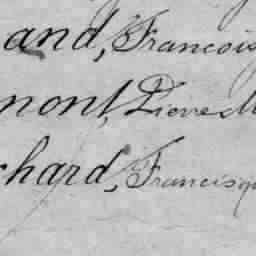 and, Francois
mont, Pierre M
chard, Francisqu